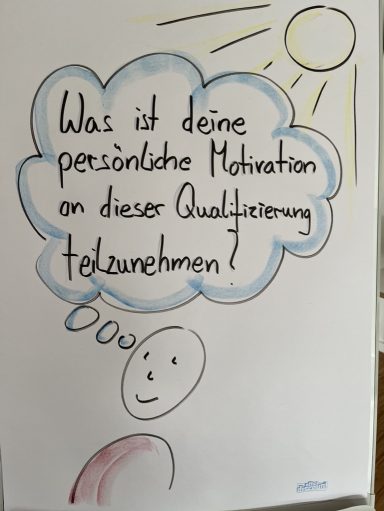 Was ist deine
persönliche Motivation
an dieser Qualifizierung
teilzunehmen?